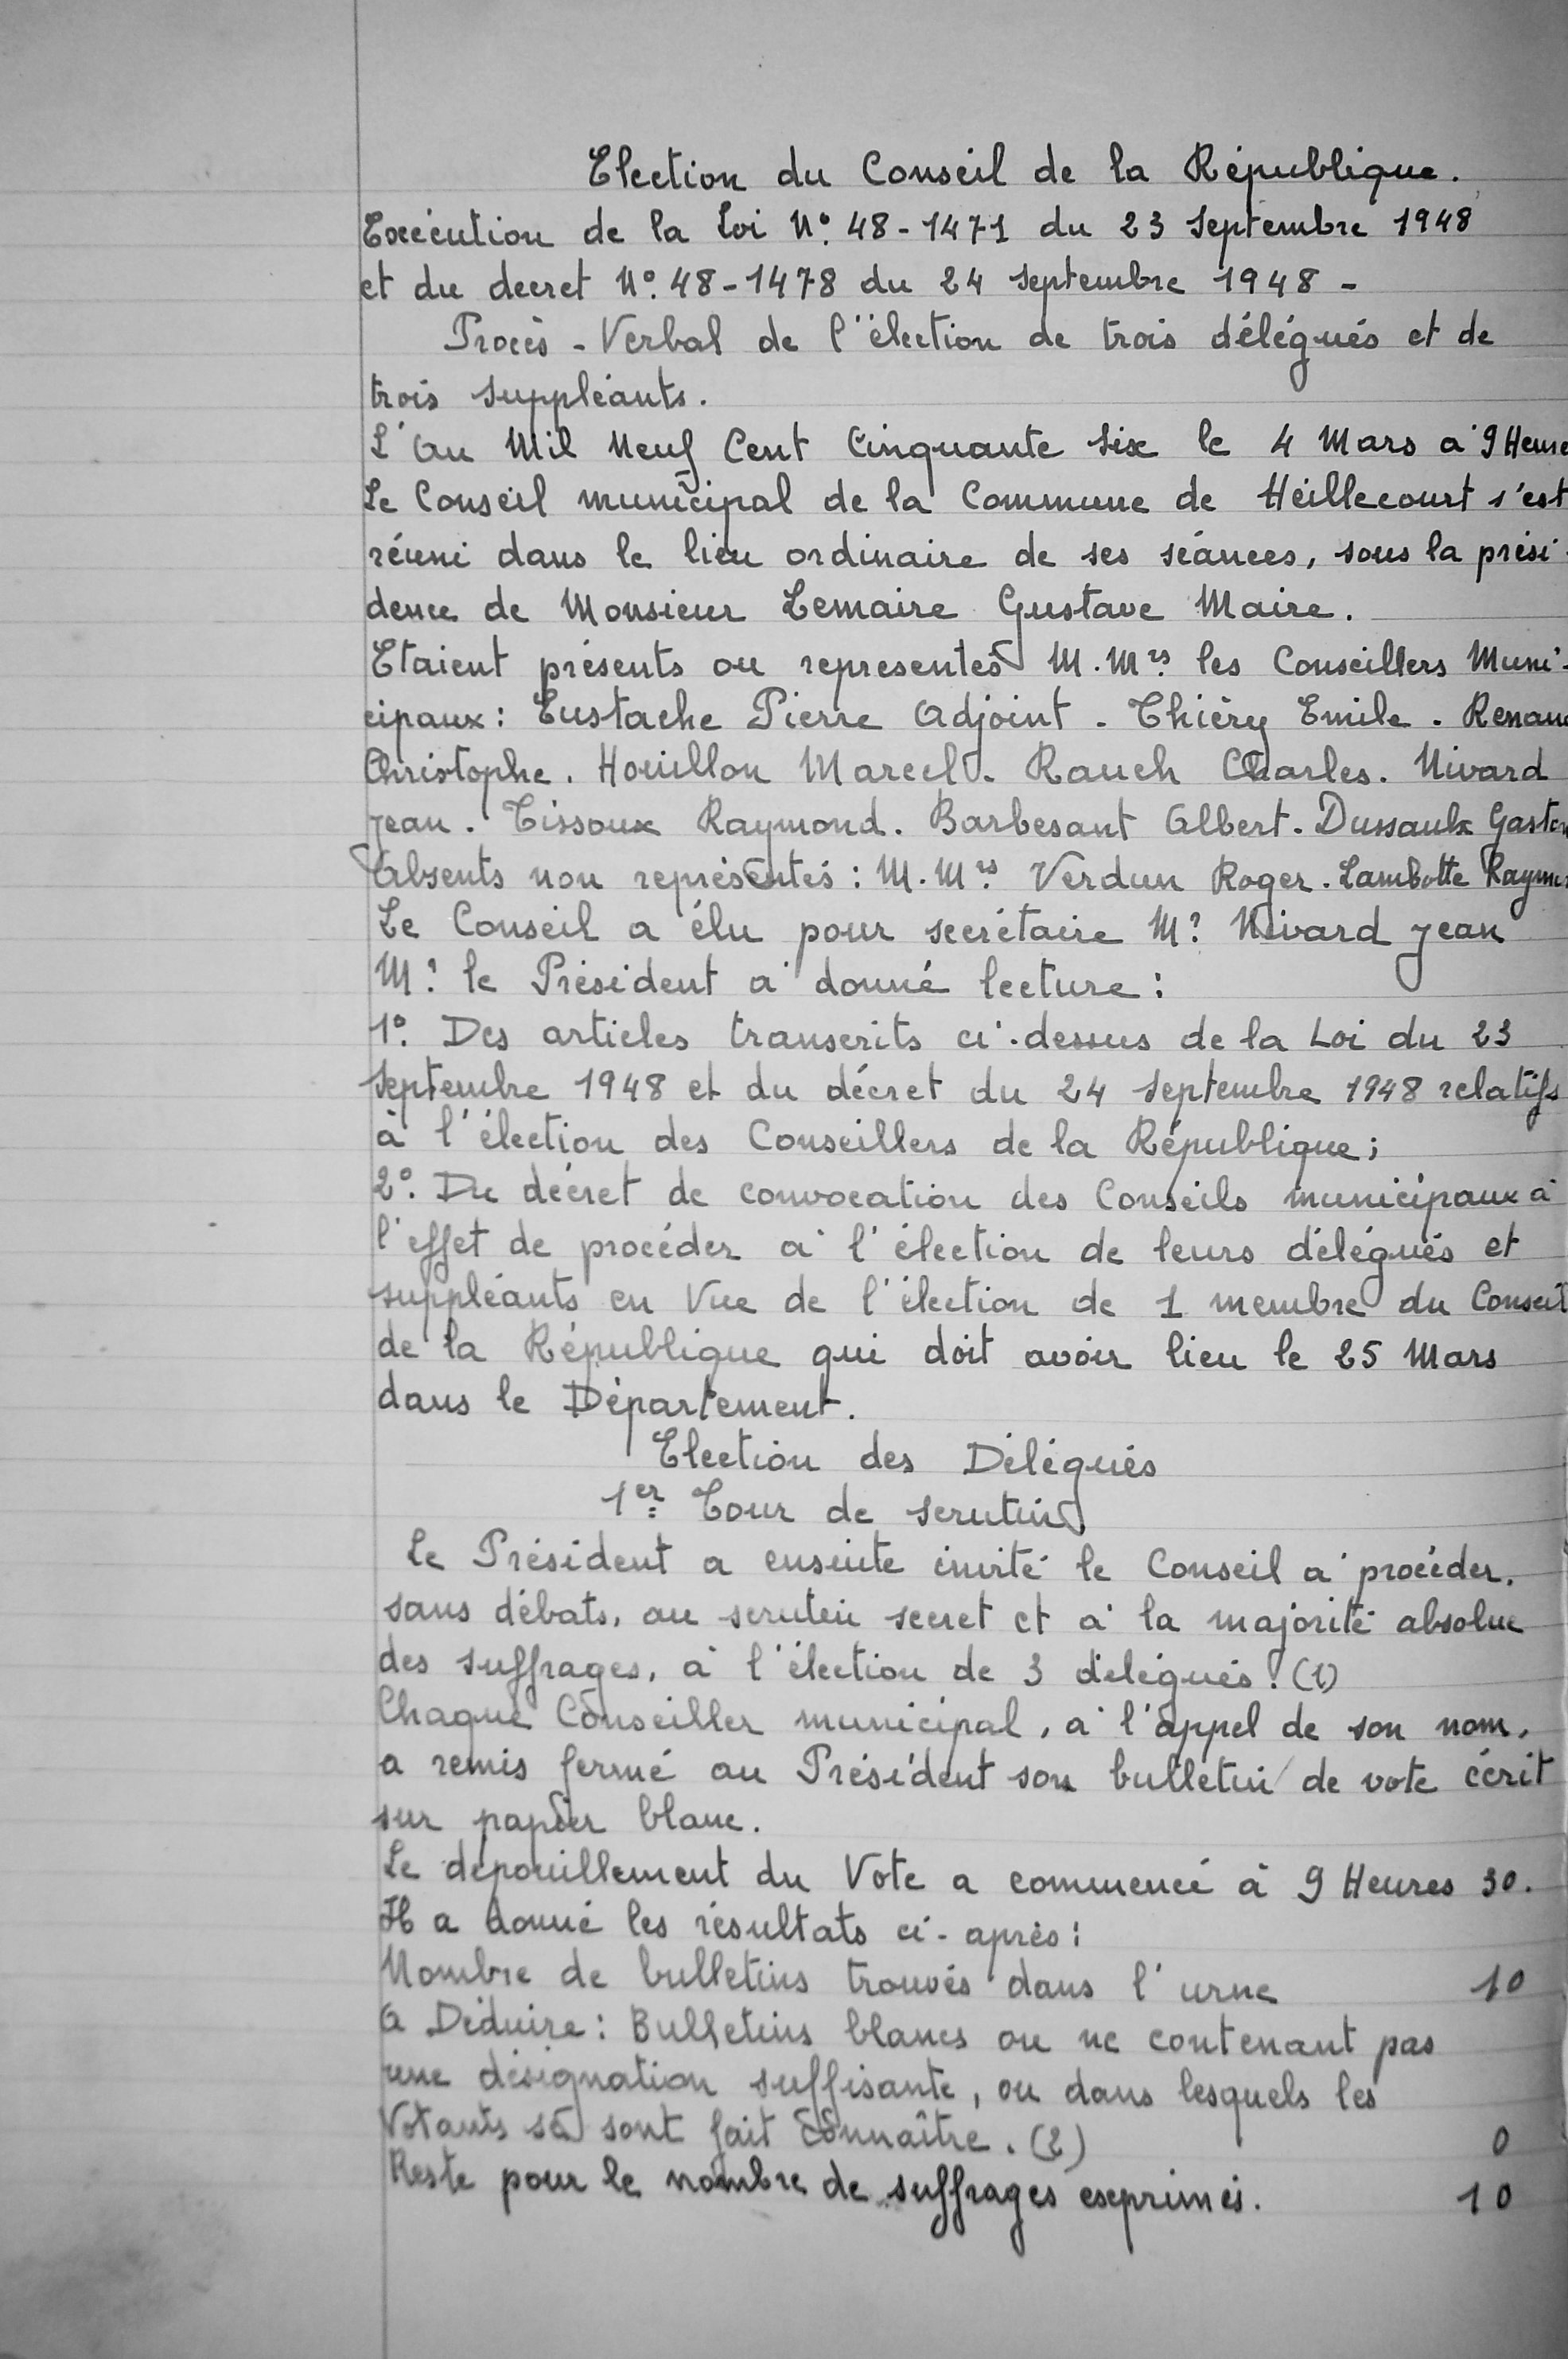 Election du Conseil de la République.
Exécution de la Loi N°. 48-1471 du 23 Septembre 1948
et du decret N°. 48-1478 du 24 septembre 1948 -
Procès-Verbal de l'élection de trois délégués et de
trois suppléants.
L'An Mil Neuf Cent Cinquante six le 4 Mars à 9 Heure
Le Conseil municipal de la Commune de Heillecourt s'est
réuni dans le lieu ordinaire de ses séances, sous la prési-
dence de Monsieur Lemaire Gustave Maire.
Etaient présents ou representés M.Mrs les Conseillers Muni-
cipaux: Eustache Pierre Adjoint - Thiéry Emile - Renau
Christophe. Houillon Marcel. Rauch Charles. Nivard
Jean. Tissoux Raymond. Barbesant Albert. Dussaulx Gaston
Absents non représentés: M.Mrs. Verdun Roger. Lambotte Raymo
Le Conseil a élu pour secrétaire Mr. Nivard Jean
Mr. le Président a donné lecture:
1°. Des articles transcrits ci-dessus de la Loi du 23
Septembre 1948 et du décret du 24 septembre 1948 relatifs
à l'élection des Conseillers de la République;
2°. Du décret de convocation des Conseils municipaux à
l'effet de procéder à l'élection de leurs délégués et
suppléants en Vue de l'élection de 1 membre du Conseil
de la République qui doit avoir lieu le 25 Mars
dans le Département.
Election des Délégués
1er Tour de scrutin
Le Président a ensuite invité le Conseil à procéder,
sans débats, au scrutin secret et à la majorité absolue
des suffrages, à l'élection de 3 délégués. (1)
Chaque Conseiller municipal, à l'appel de son nom,
a remis fermé au Président son bulletin de vote écrit
sur papier blanc.
Le depouillement du Vote a commencé à 9 Heures 30.
Il a donné les résultats ci-après:
Nombre de bulletins trouvés dans l'urne 10
A Déduire: Bulletins blancs ou ne contenant pas
une désignation suffisante, ou dans lesquels les
Votants se sont fait connaître. (2) 0
Reste pour le nombre de suffrages exprimés. 10